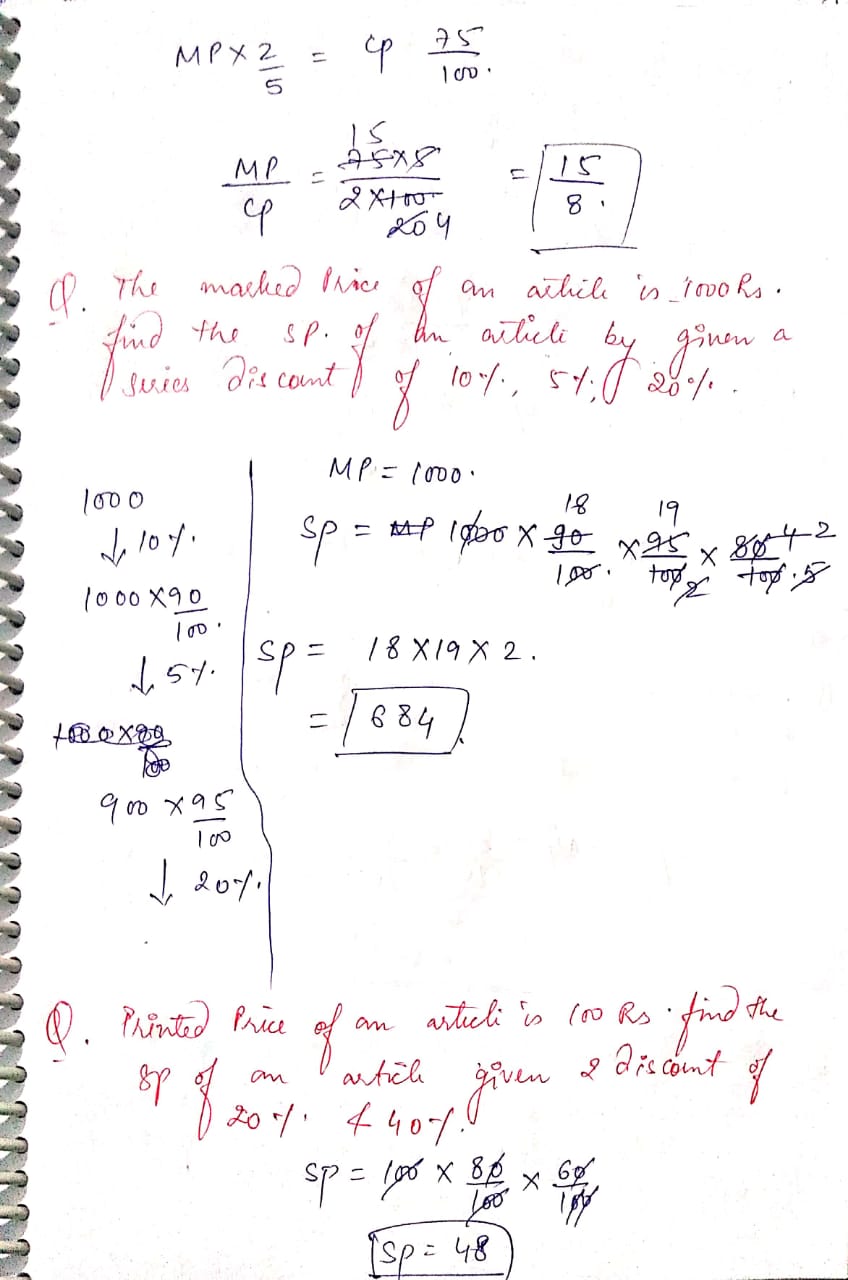 MP × 2/5 = CP 75/100.
MP/CP = 75×5/2×100 15 20 4 = 15/8.
Q. The marked Price of an article is 1000 Rs.
find the SP. of an article by given a
series Discount of 10%, 5%, 20%.
MP = 1000.
SP = MP 1000 × 90/100. × 95/100 × 80/100. 18 19 2 4 2 5
SP = 18 × 19 × 2.
= 684
1000
↓ 10%.
1000 × 90/100.
↓ 5%.
900 × 95/100
↓ 20%.
Q. Printed Price of an article is 100 Rs. find the
SP of an article given 2 Discount of
20%. & 40%.
SP = 100 × 80/100 × 60/100
SP = 48